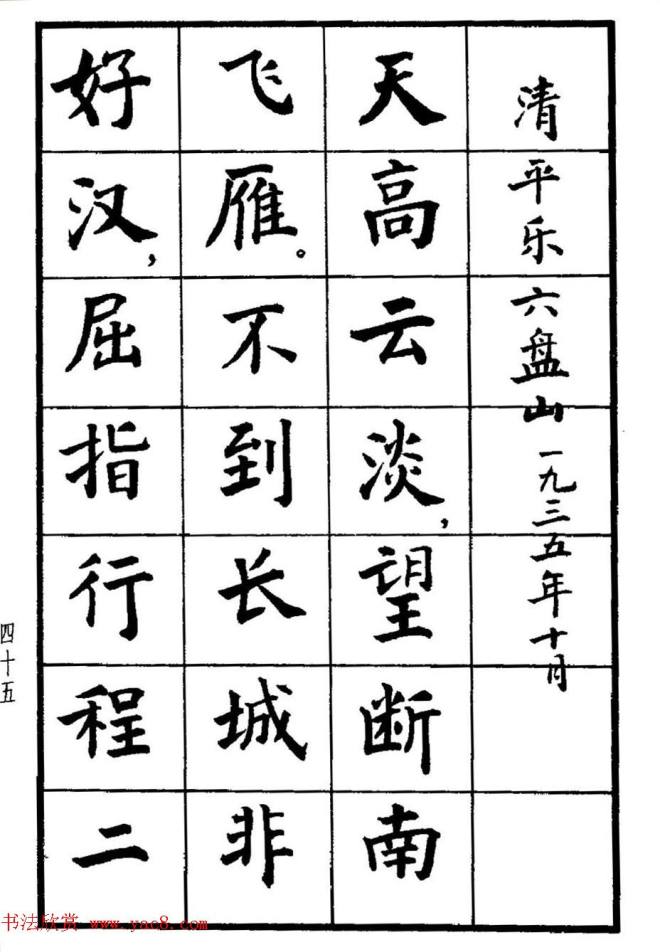 清平乐 六盘山 一九三五年十月
天高云淡，望断南
飞雁。不到长城非
好汉，屈指行程二
四十五
书法欣赏 www.yac8.com